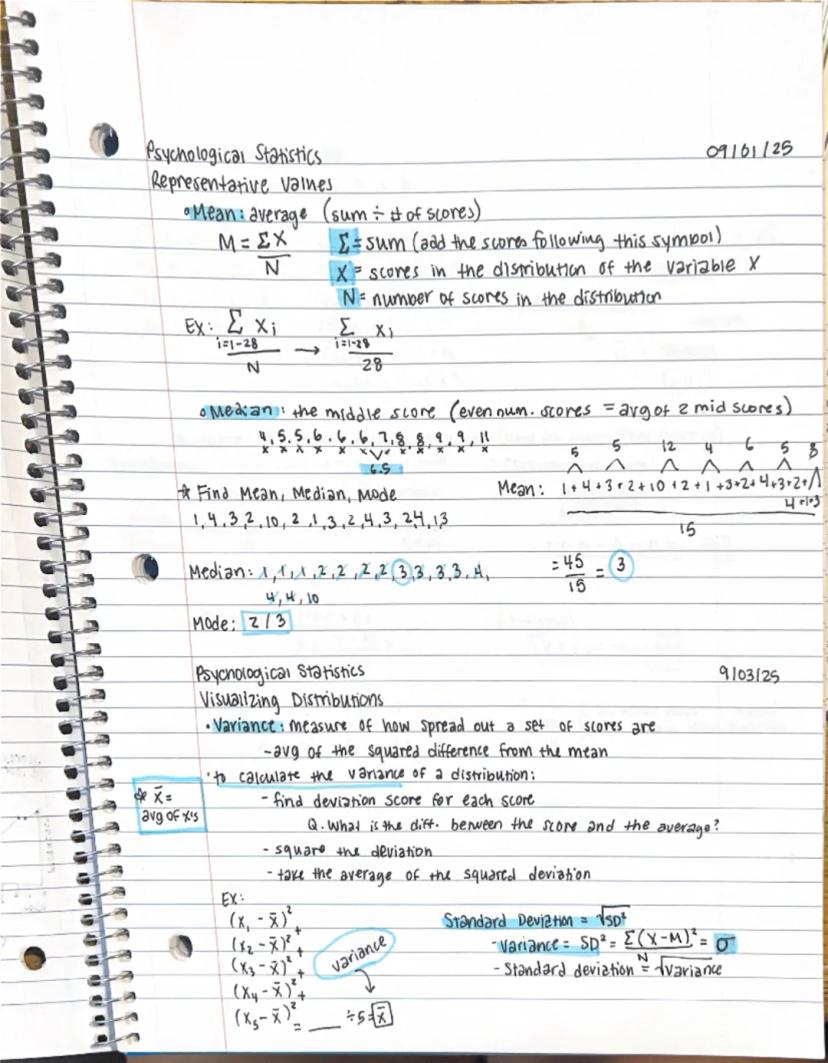 Psychological Statistics 09/01/25
Representative Values
• Mean: average (sum ÷ # of scores)
M = ΣX / N
Σ = sum (add the scores following this symbol)
X = scores in the distribution of the variable X
N = number of scores in the distribution
Ex: Σ Xi → Σ Xi
i=1-28 i=1-28
N 28
• Median: the middle score (even num. scores = avg of 2 mid scores)
4, 5, 5, 6, 6, 6, 6, 7, 8, 8, 9, 9, 11
6.5
5 5 12 4 6 5 8
☆ Find Mean, Median, Mode
Mean: 1+4+3+2+10+2+1+3+2+4+3+2+
4+1+3
1, 4, 3, 2, 10, 2, 1, 3, 2, 4, 3, 24, 13
15
Median: 1, 1, 1, 2, 2, 2, 2, 3, 3, 3, 3, 4,
4, 4, 10
= 45 / 15 = 3
Mode: 2/3
Psychological Statistics 9/03/25
Visualizing Distributions
• Variance: measure of how spread out a set of scores are
- avg of the squared difference from the mean
• to calculate the variance of a distribution:
☆ x̄ =
avg of x's
- find deviation score for each score
Q. What is the diff. between the score and the average?
- square the deviation
- take the average of the squared deviation
Ex:
(x₁ - x̄)² +
(x₂ - x̄)² +
(x₃ - x̄)² +
(x₄ - x̄)² +
(x₅ - x̄)² = ___ ÷5= x̄
variance
Standard Deviation = √SD²
- Variance = SD² = Σ(X-M)² / N = σ
- Standard deviation = √variance